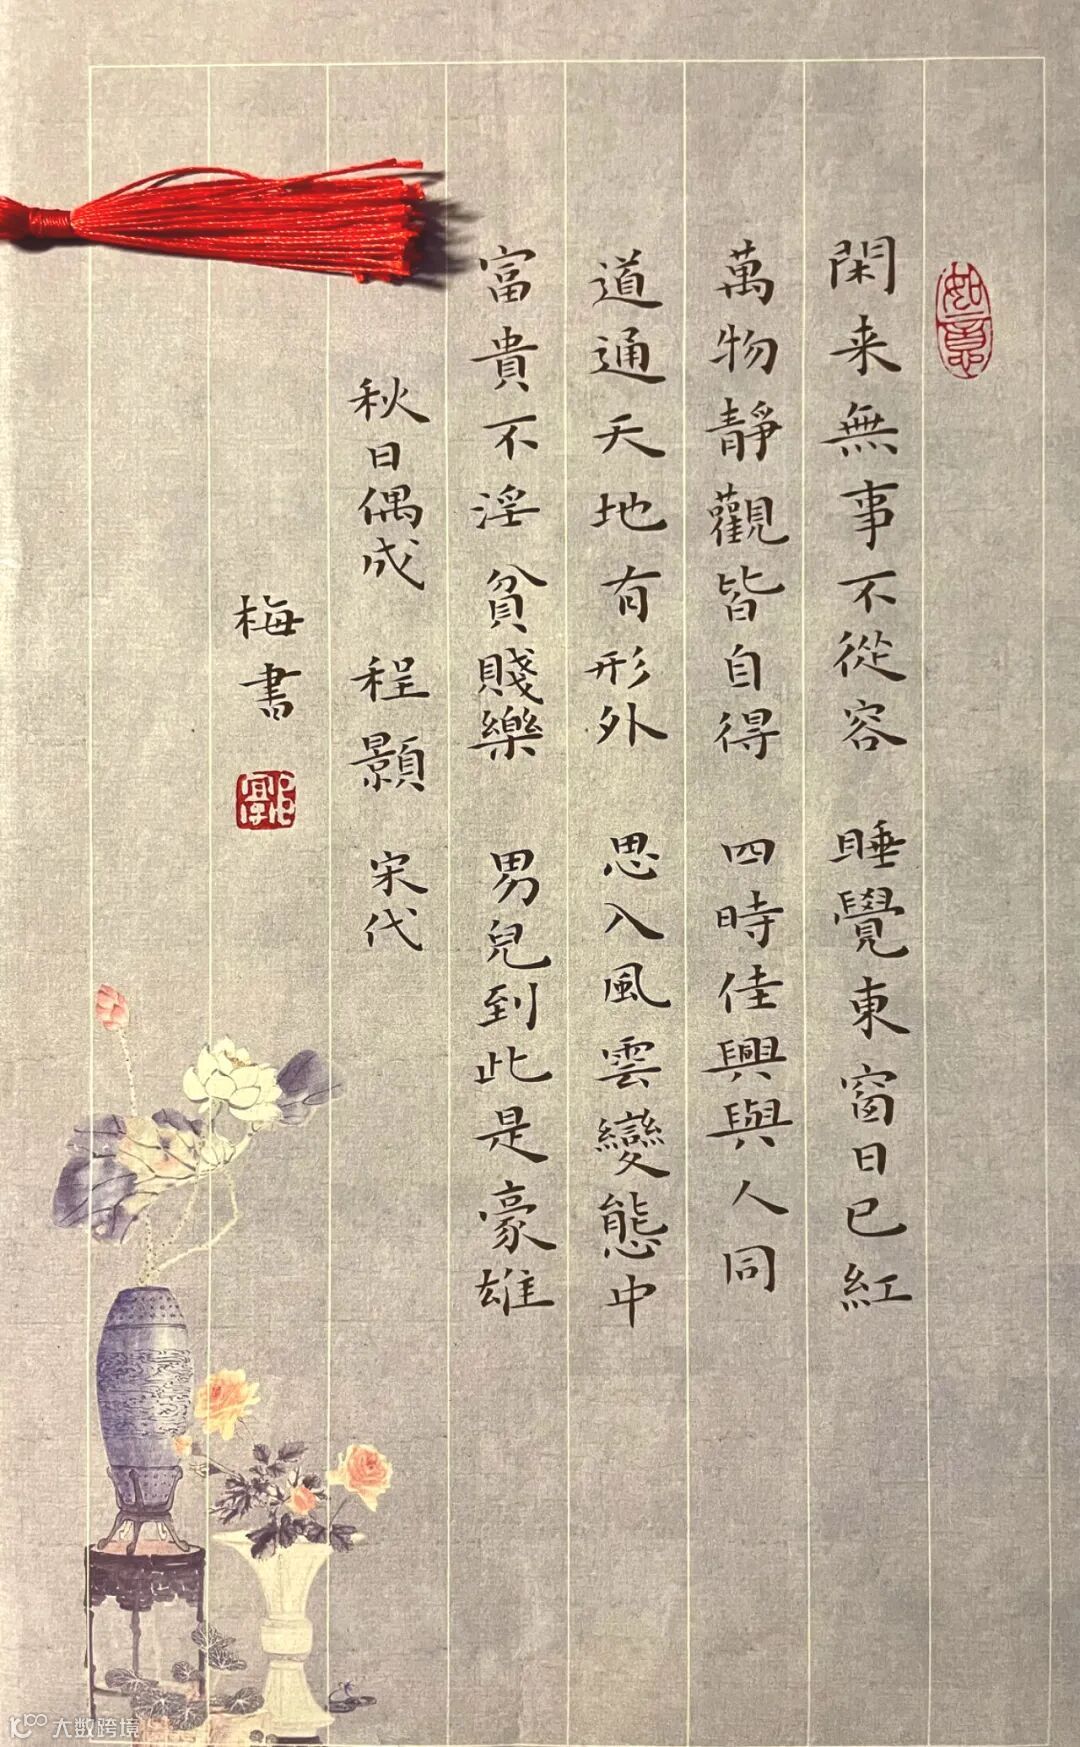 如意
閑来無事不從容 睡覺東窗日已紅
萬物靜觀皆自得 四時佳興與人同
道通天地有形外 思入風雲變態中
富貴不淫貧賤樂 男兒到此是豪雄
秋日偶成 程顥 宋代
梅書
大数跨境